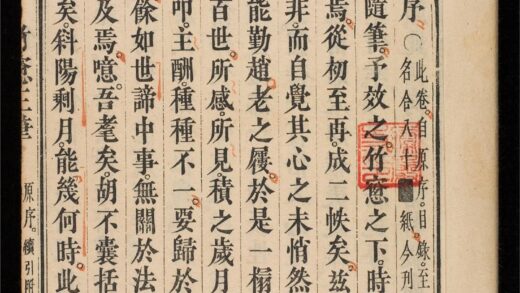 序 ○此卷自原序。目錄。至
名合八十紙。今刊
隨筆予效之竹窓之下時
焉從初至再成二帙矣茲
非而自覺其心之未悄然
能勤趙老之屨於是一榻
百世所感所見積之歲月
叩主酬種種不一要歸於
餘如世諦中事無關於法
及焉噫吾耄矣胡不囊括
矣斜陽剩月能幾何時此
竹窓三筆 原序。續引附